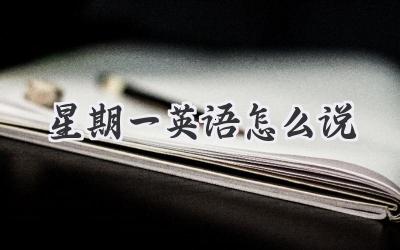 星期一英语怎么说